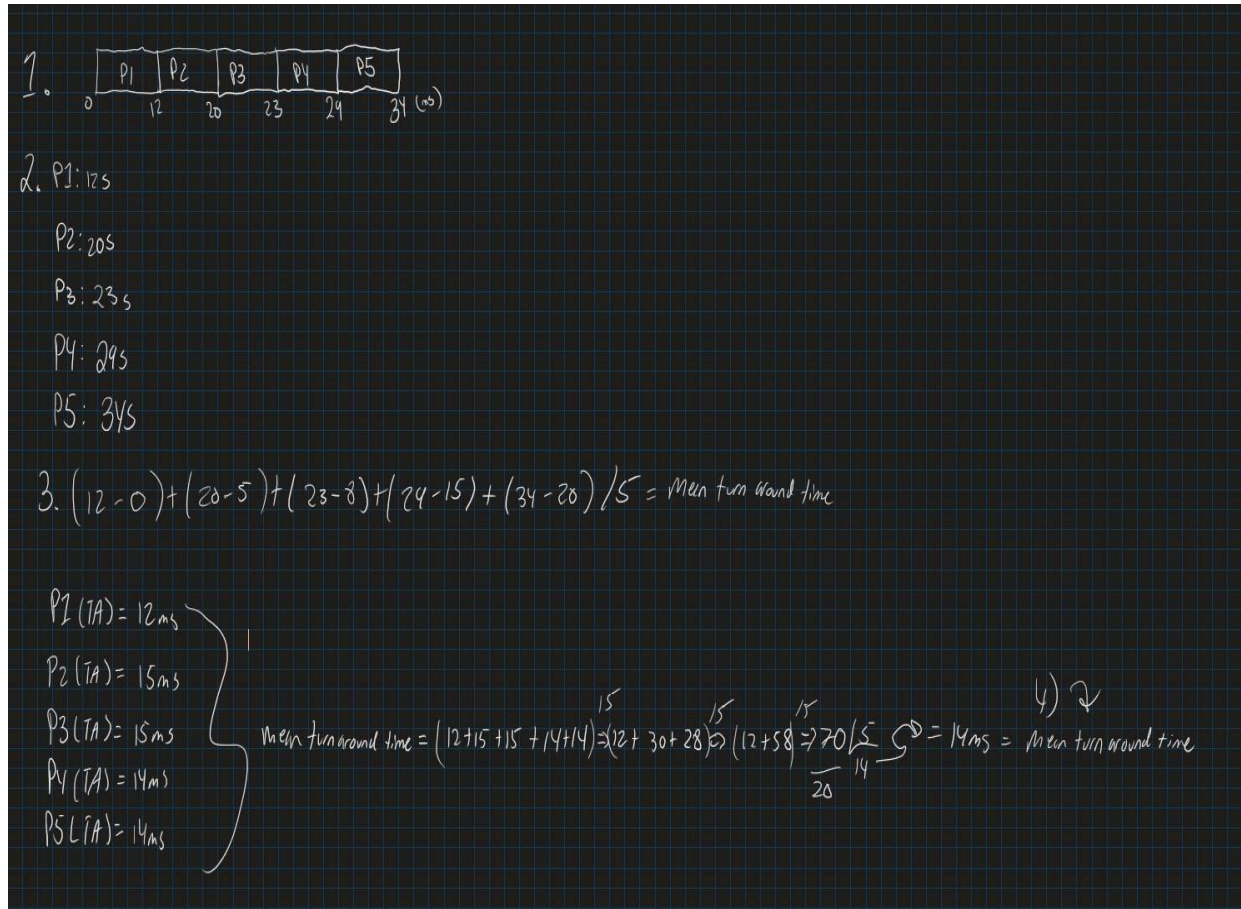 1. P1 P2 P3 P4 P5
0 12 20 23 29 34 (ms)
2. P1: 12s
P2: 20s
P3: 23s
P4: 29s
P5: 34s
3. (12-0)+(20-5)+(23-8)+(29-15)+(34-20)/5 = Mean turn around time
P1(TA) = 12ms
P2(TA) = 15ms
P3(TA) = 15ms
P4(TA) = 14ms
P5(TA) = 14ms
4)
15 15 15
mean turn around time = (12+15+15+14+14) => (12+30+28) => (12+58) => 70/5 = 14ms = Mean turn around time
20 14